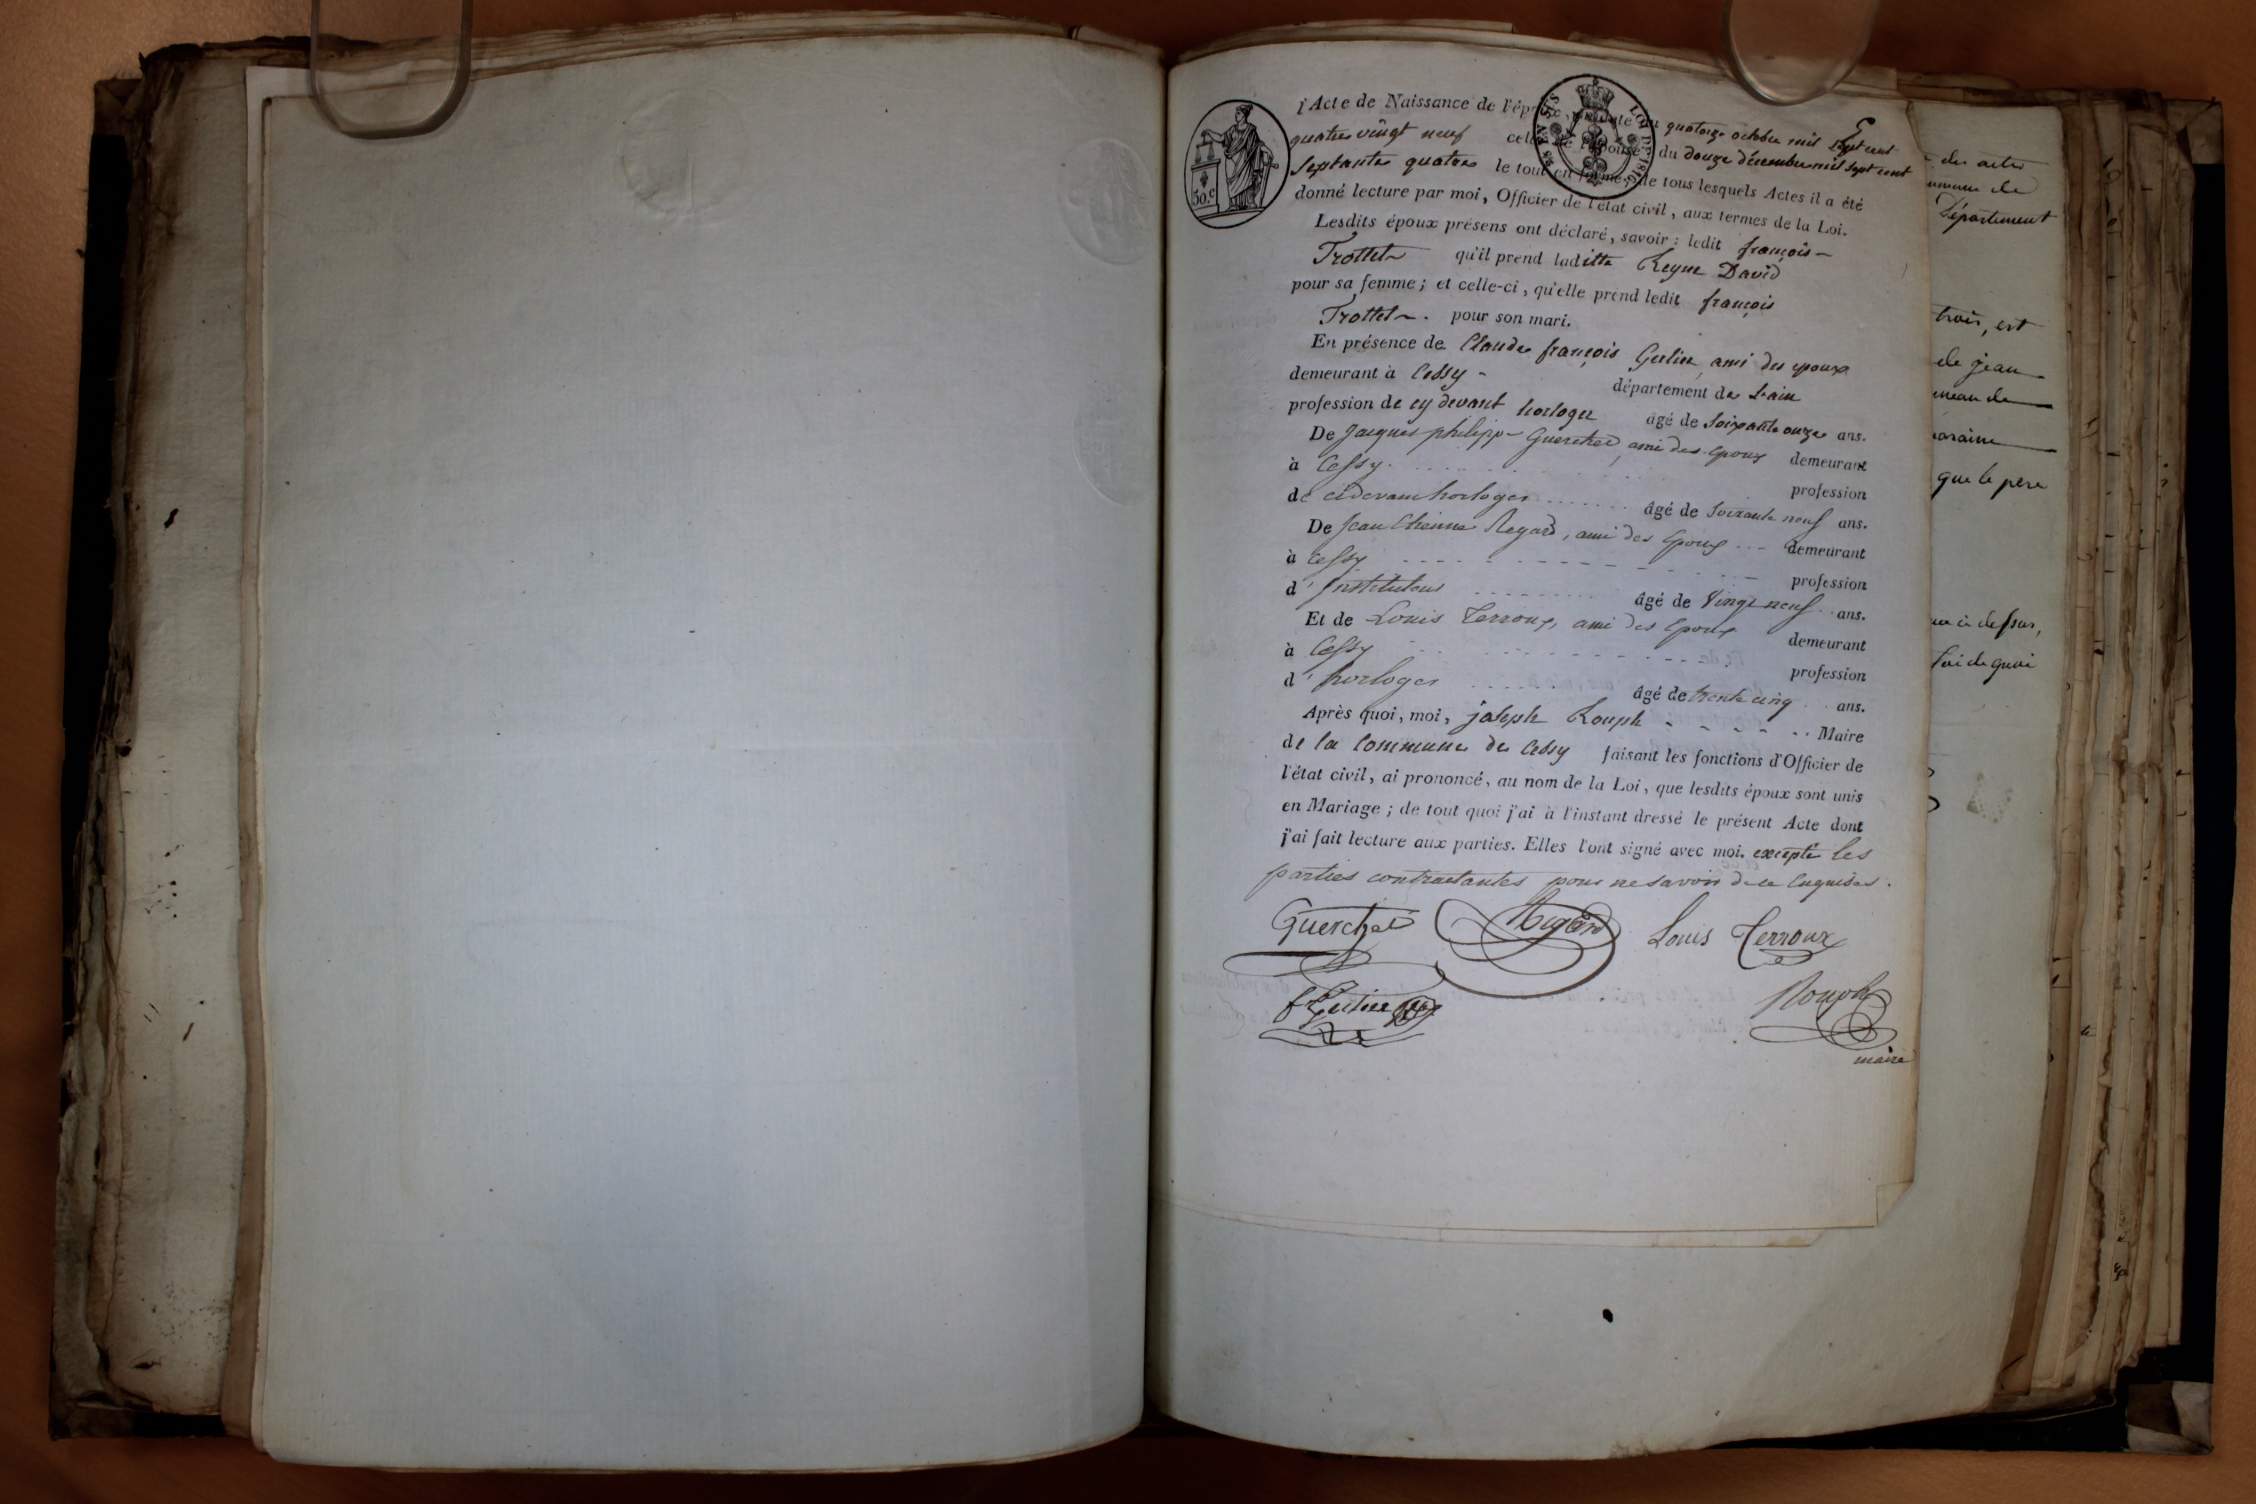 l'Acte de Naissance de l'époux, en date du quatorze octobre mil sept cent
quatre vingt neuf celui de l'épouse, du douze décembre mil sept cent
septante quatre le tout en forme; de tous lesquels Actes il a été
donné lecture par moi, Officier de l'état civil, aux termes de la Loi.
Lesdits époux présens ont déclaré, savoir: ledit françois
Trottet qu'il prend laditte Reyne David
pour sa femme; et celle-ci, qu'elle prend ledit françois
Trottet. pour son mari.
En présence de Claude françois ami des epoux
demeurant à Cessy département de l'ain
profession de cy devant horloger âgé de Soixante onze ans.
De Jacques philippe Guerchet, ami des Epoux demeurant
à Cessy profession
de cidevant horloger âgé de Soixante neuf ans.
De Jean Etienne Regard, ami des Epoux demeurant
à Cessy profession
d'Instituteur âgé de Vingt neuf ans.
Et de Louis Terroux, ami des Epoux demeurant
à Cessy profession
d'horloger âgé de trente cinq ans.
Après quoi, moi, joseph Rouph Maire
de la Commune de Cessy faisant les fonctions d'Officier de
l'état civil, ai prononcé, au nom de la Loi, que lesdits époux sont unis
en Mariage; de tout quoi j'ai à l'instant dressé le présent Acte dont
j'ai fait lecture aux parties. Elles l'ont signé avec moi. excepté les
parties contractantes pour ne savoir de ce Enquises.
Guerchet Regard Louis Terroux
Rouph
maire
30.c
LOI DE 1816
des actes
Département
trois, est
de jean
que le père
ci dessus,
foi de quoi